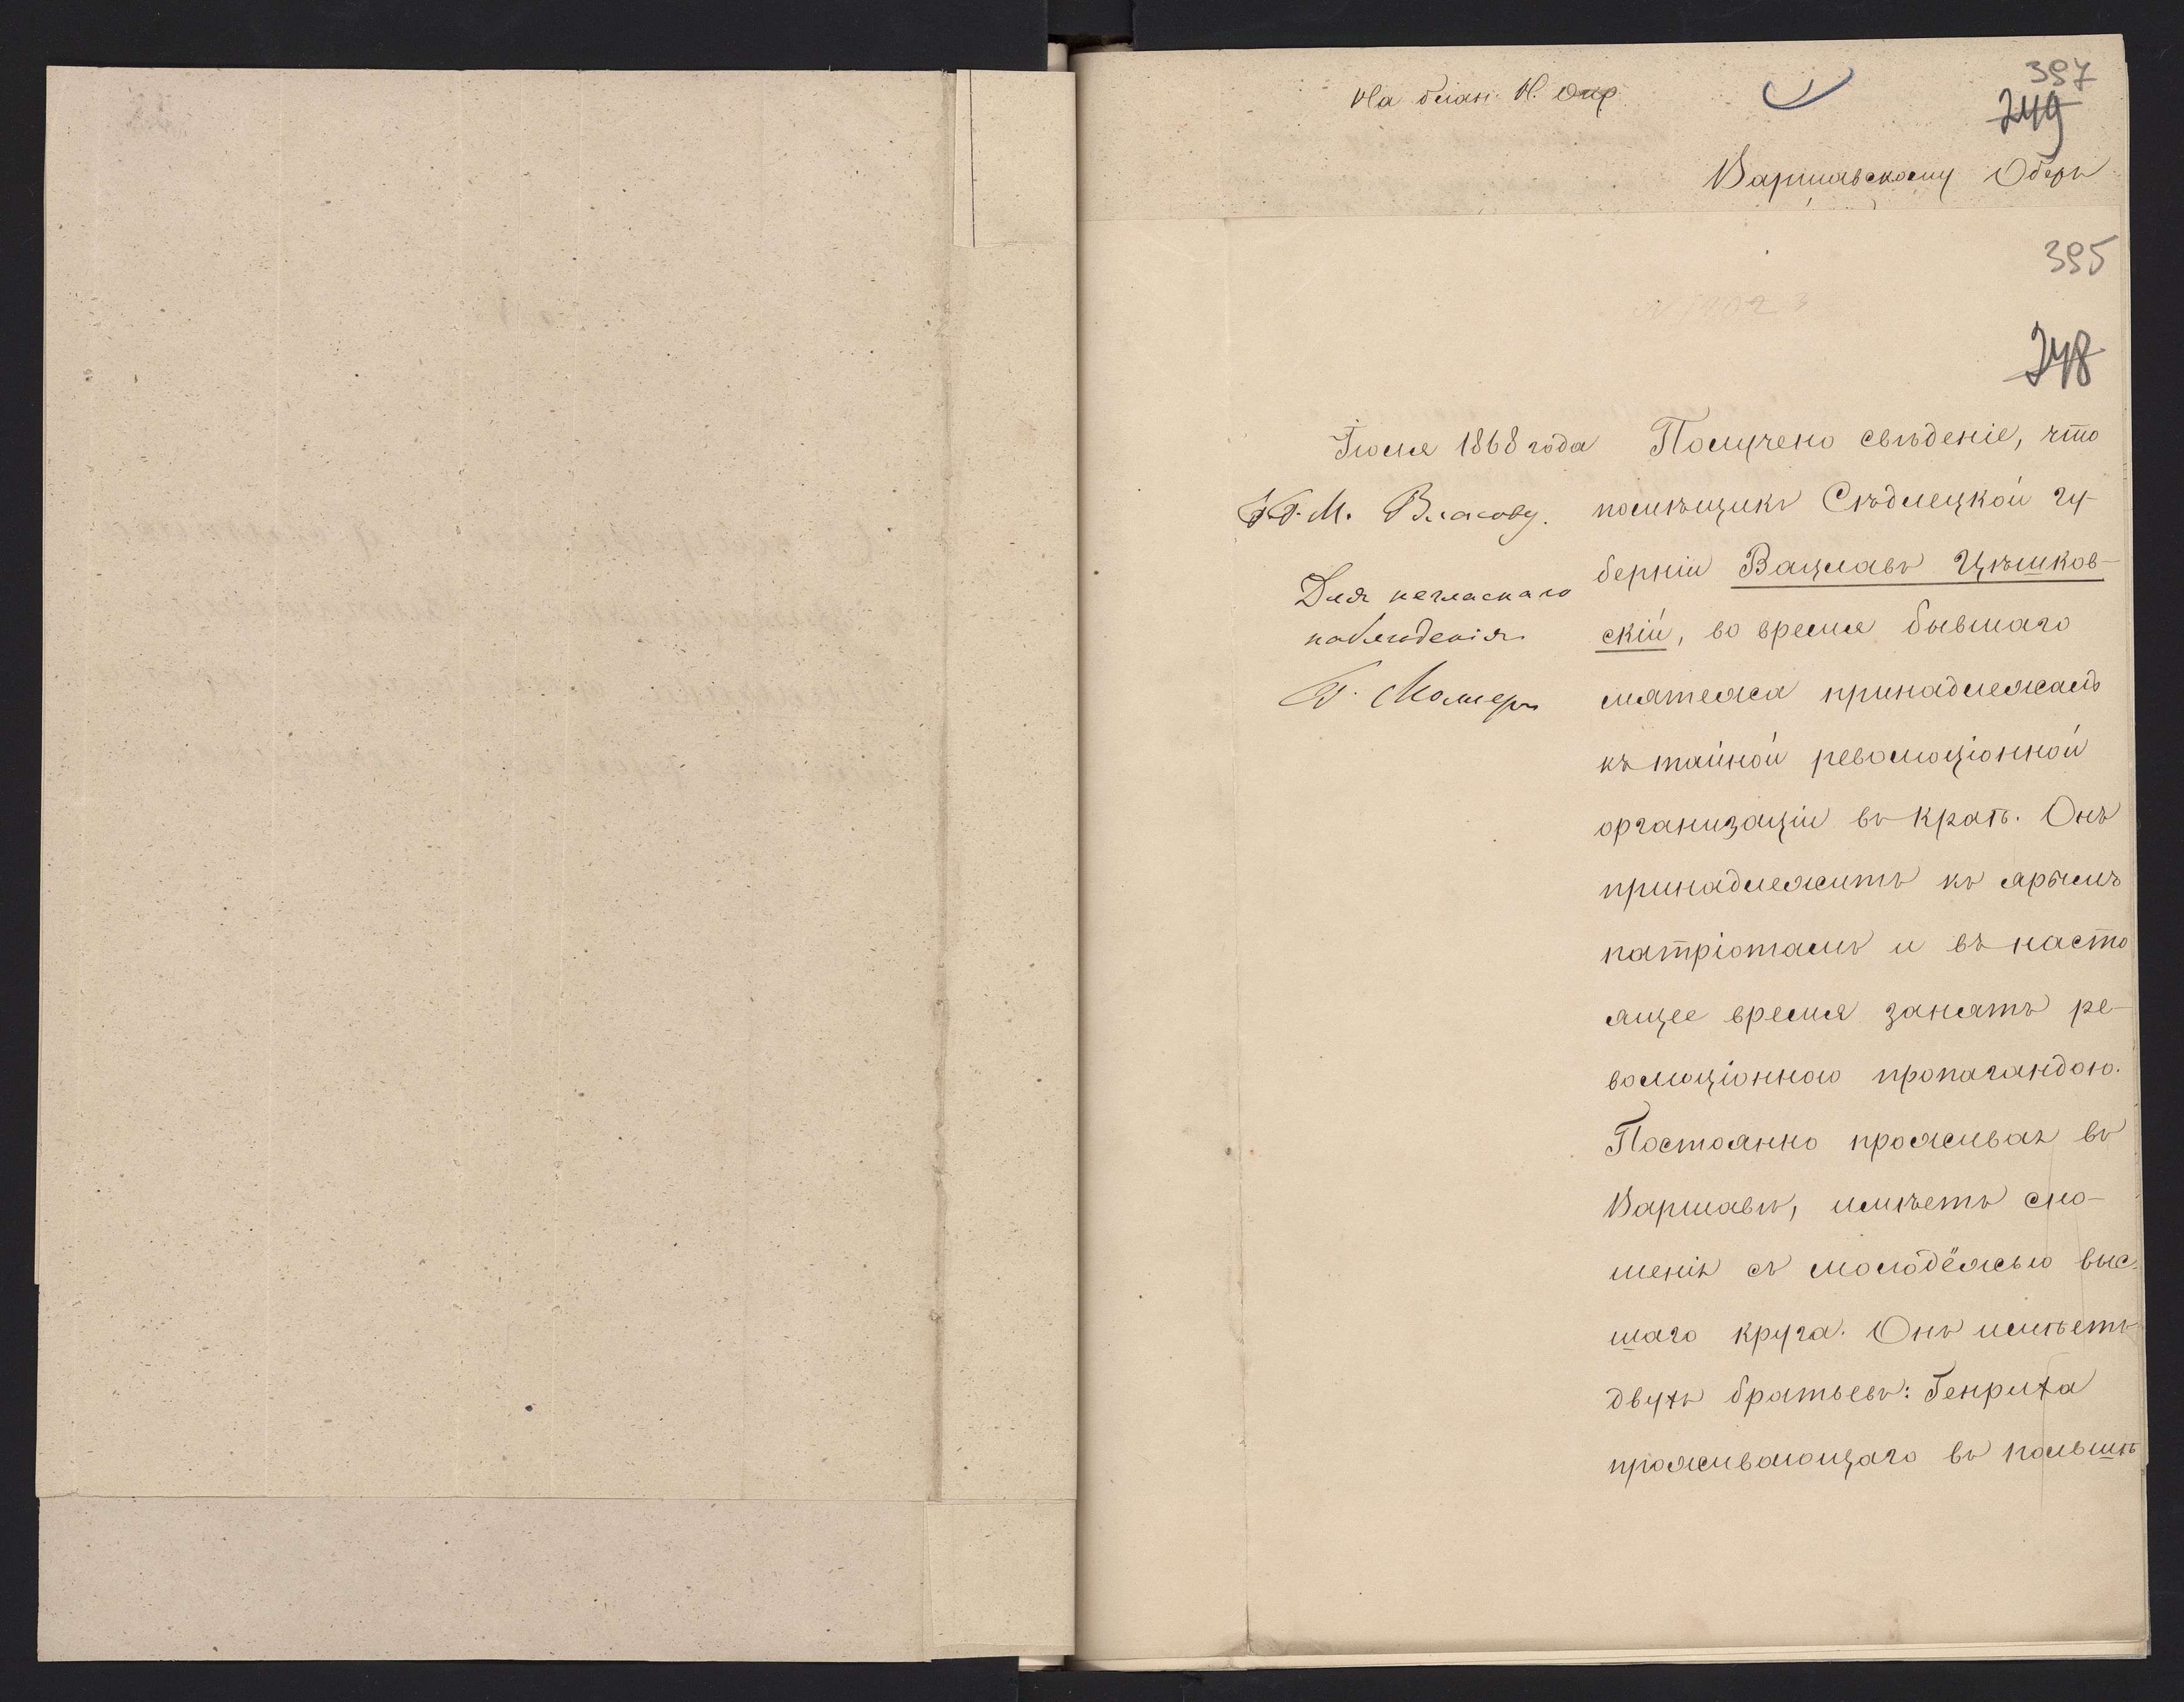 397
На блан. Н. Окр.
249
Варшавскому Оберъ
395
248
Іюля 1868 года
Г. М. Власову.
Для негласнаго
наблюденія
Получено свѣденіе, что
помѣщикъ Сѣдлецкой гу-
берніи Вацлавъ Цѣшков-
скій, во время бывшаго
мятежа принадлежалъ
къ тайной революціонной
организаціи въ краѣ. Онъ
принадлежитъ къ ярымъ
патріотамъ и въ насто
ящее время занятъ ре-
волюціонною пропагандою.
Постоянно проживая въ
Варшавѣ, имѣетъ сно-
шенія съ молодёжью выс-
шаго круга. Онъ имѣетъ
двухъ братьевъ: Генриха
проживающаго въ Польшѣ